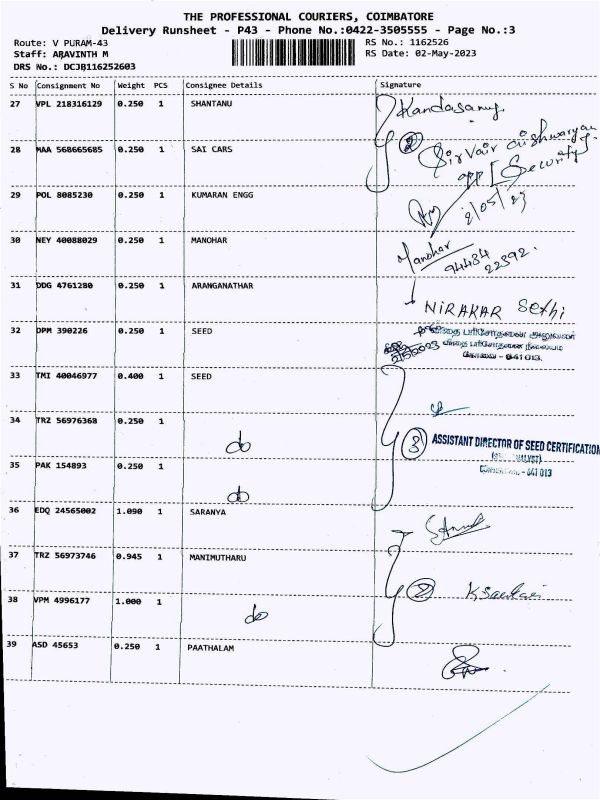 THE PROFESSIONAL COURIERS, COIMBATORE
Delivery Runsheet - P43 - Phone No.:0422-3505555 - Page No.:3
Route: V PURAM-43 RS No.: 1162526
Staff: ARAVINTH M RS Date: 02-May-2023
DRS No.: DCJB116252603
S No Consignment No Weight PCS Consignee Details Signature
27 VPL 218316129 0.250 1 SHANTANU Kandasamy
28 MAA 568665685 0.250 1 SAI CARS 2
Security
29 POL 8085230 0.250 1 KUMARAN ENGG 2/05/23
30 NEY 40088029 0.250 1 MANOHAR Manohar
94434 22392.
31 DDG 4761280 0.250 1 ARANGANATHAR NIRAKAR Sethi
32 DPM 390226 0.250 1 SEED விதை பரிசோதனை அலுவலர்
விதை பரிசோதனை நிலையம்
கோவை - 641 013.
33 TMI 40046977 0.400 1 SEED
34 TRZ 56976368 0.250 1 do 3 ASSISTANT DIRECTOR OF SEED CERTIFICATION
35 PAK 154893 0.250 1 do - 641 013
36 EDQ 24565002 1.090 1 SARANYA
37 TRZ 56973746 0.945 1 MANIMUTHARU 2
38 VPM 4996177 1.000 1 do
39 ASD 45653 0.250 1 PAATHALAM